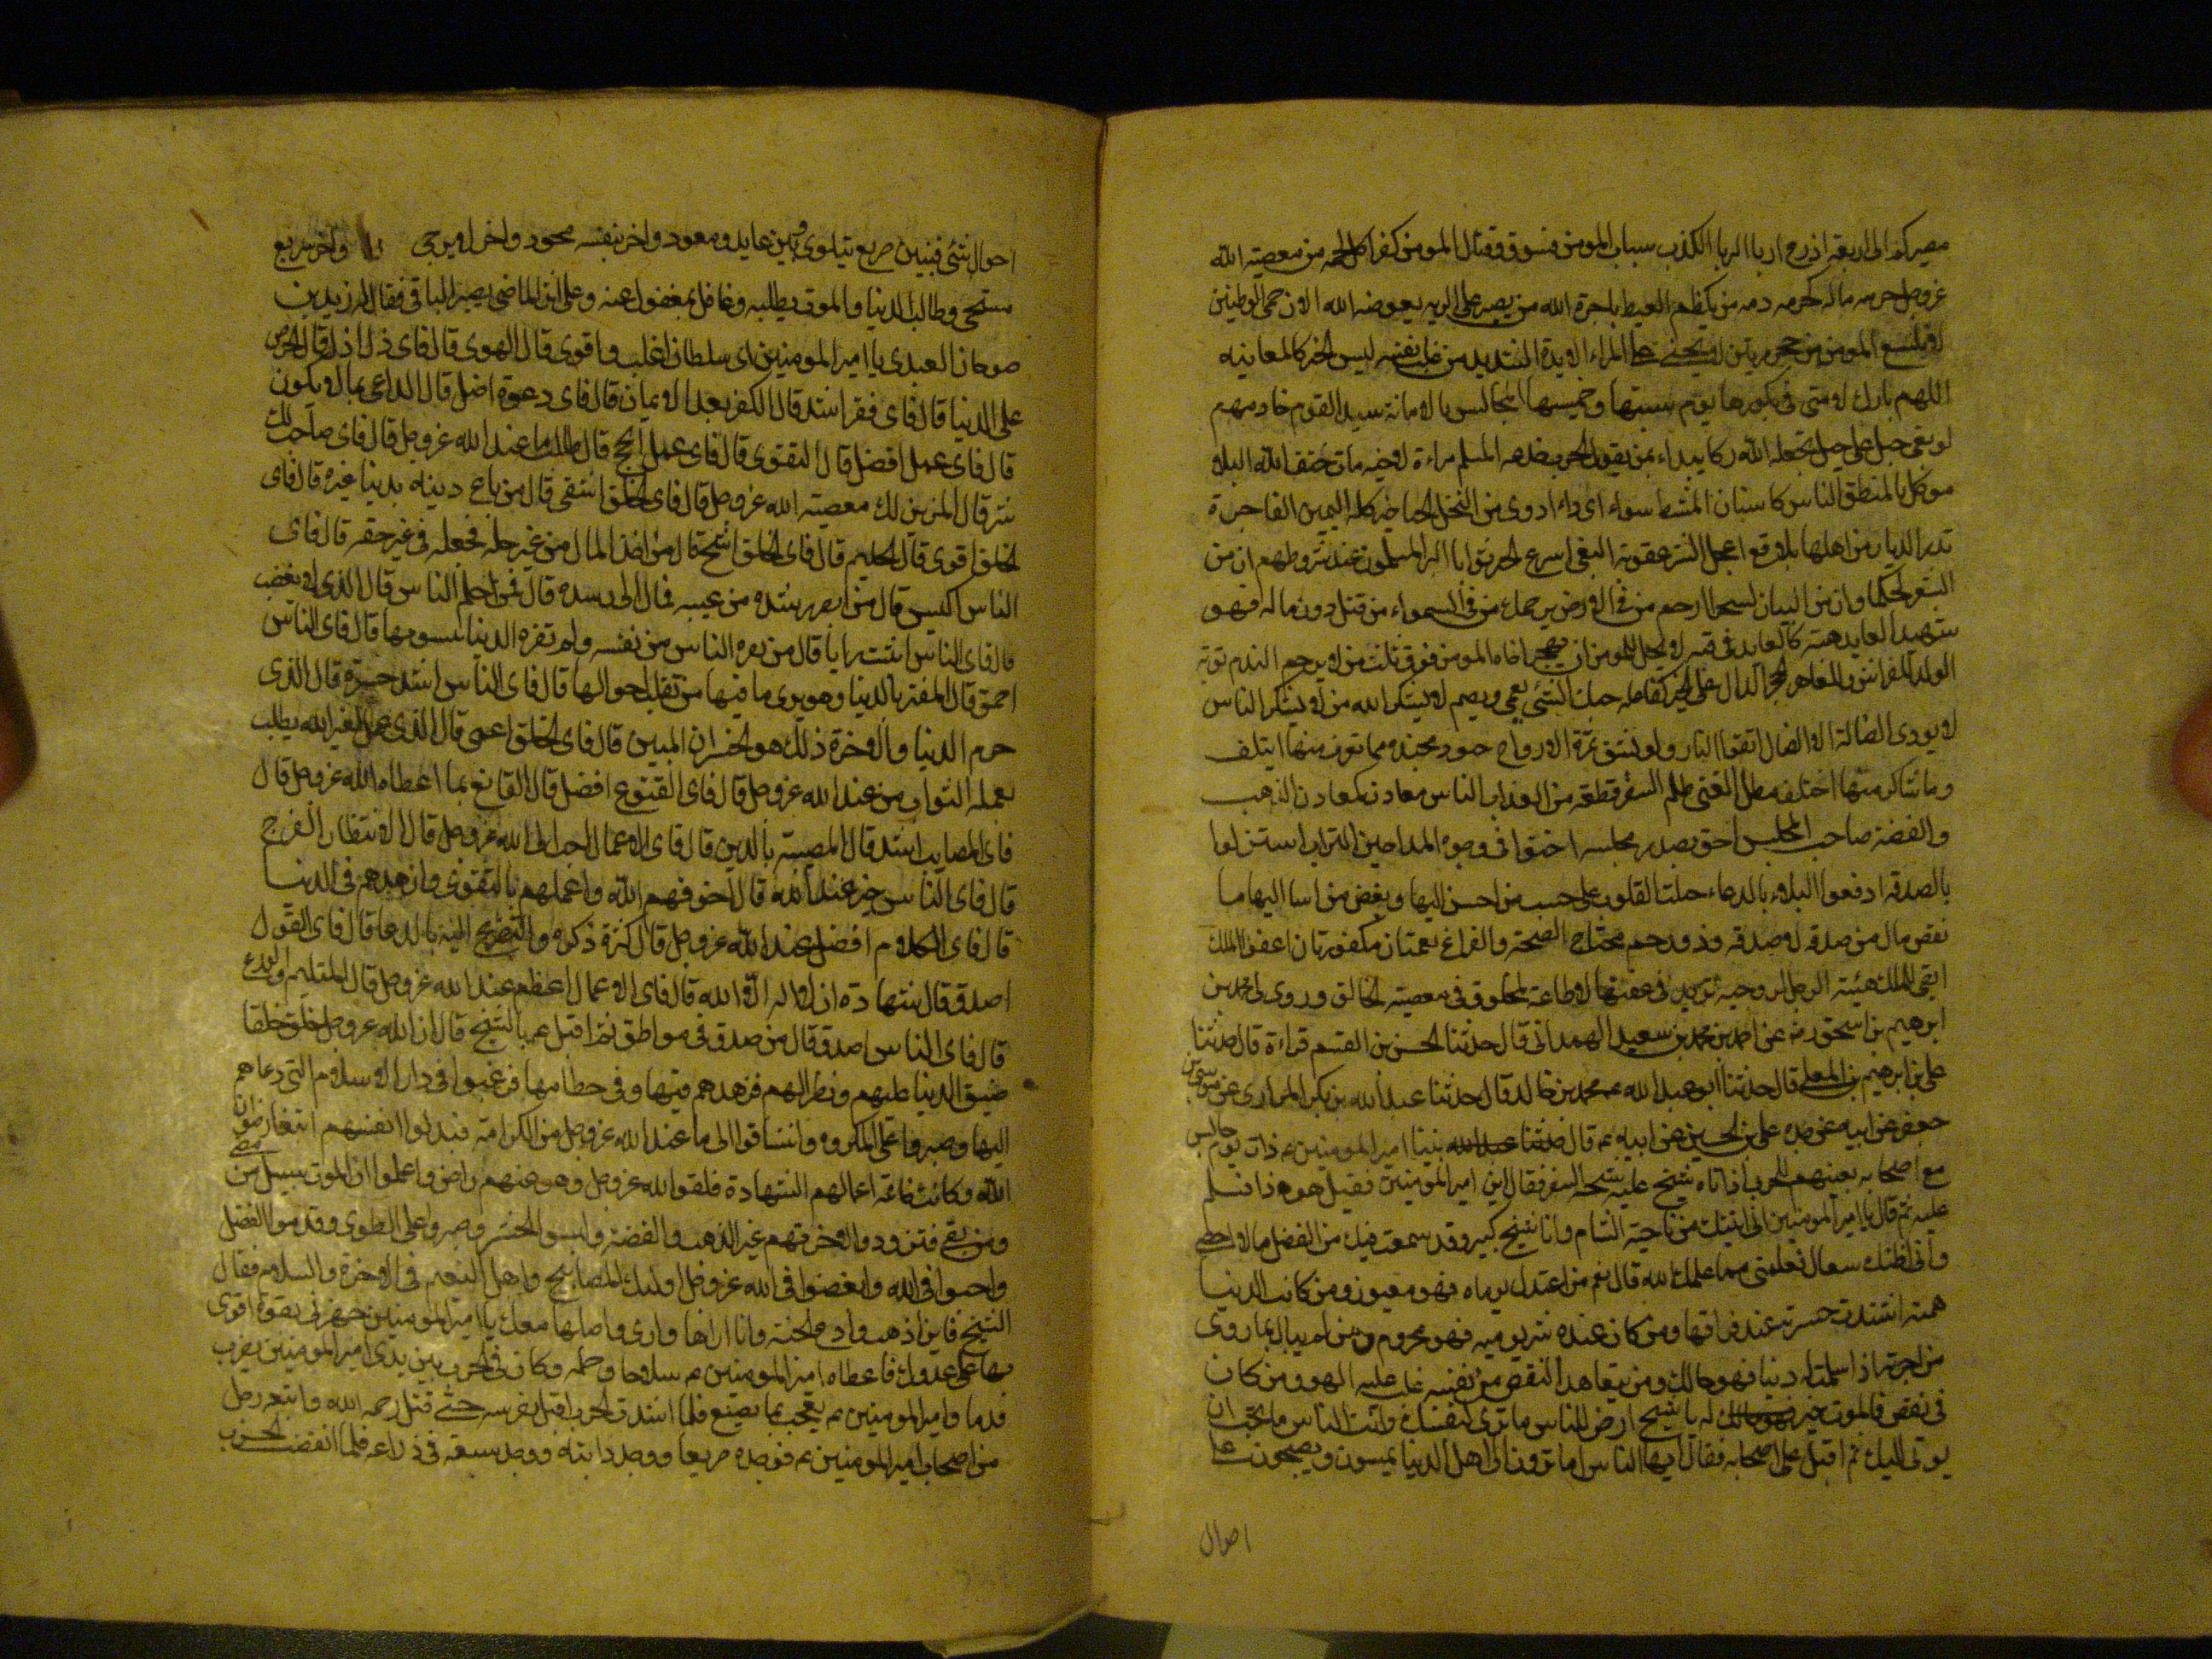 مصيركم الى اربعة اذرع اربا الربا الكذب سباب المومن فسوق وقتال المومن كفر اكل لحمه من معصية الله
عز وجل حرمه ماله كحرمه دمه من يكظم الغيط ياجره الله من يصبر على الرزيه يعوضه الله الان حمى الوطيس
لا يلسع المومن من حجر مرتين لا يجنى على المراء الا يده الشديد من غلب نفسه ليس الخبر كالمعاينه
اللهم بارك لامتى فى بكورها يوم سبتها وخميسها المجالس بالامانة سيد القوم خادمهم
لو بغى جبل على جبل لجعله الله دكا ابداء بمن تعول الحرب خدعه المسلم مراءة لاخيه مات حتف انفه البلاء
موكل بالمنطق الناس كاسنان المشط سواء اى داء ادوى من البخل الحياء خير كله اليمين الفاجرة
تذر الديار من اهلها بلاقع اعجل الشر عقوبة البغى اسرع الخير ثوابا البر المسلمون عند شروطهم ان من
الشعر لحكما وان من البيان لسحرا ارحم من فى الارض يرحمك من فى السماء من قتل دون ماله فهو
شهيد العايد هبته كالعايد فى قيئه لا يحل للمومن ان يهجر اخاه المومن فوق ثلث من لا يرحم الندم توبة
الولد للفراش وللعاهر الحجر الدال على الخير كفاعله حبك الشئ يعمى ويصم لا يشكر الله من لا يشكر الناس
لا يووى الضالة الا الضال اتقوا النار ولو بشق تمرة الارواح جنود مجنده مما تعارف منها ايتلف
وما تناكر منها اختلف مطل الغنى ظلم السفر قطعه من العذاب الناس معادن كمعادن الذهب
والفضة صاحب المجلس احق بصدر مجلسه احثوا فى وجوه المداحين التراب استنزلوا
بالصدقة ادفعوا البلاء بالدعاء جبلت القلوب على حب من احسن اليها وبغض من اسا اليها ما
نقص مال من صدقه لا صدقه وذو رحم محتاج الصحة والفراغ نعمتان مكفورتان اعفو الملك
ابقى للملك هيئة الرجل لزوجته تزيد فى عفتها لا طاعة لمخلوق فى معصية الخالق وروى لى محمد بن
ابرهيم بن اسحق رض عن احمد بن محمد بن سعيد الهمدانى قال حدثنا الحسن بن القسم قراءة قال حدثنا
على بن ابرهيم بن المعلى قال حدثنا ابو عبد الله محمد بن خالد قال حدثنا عبد الله بن بكر المرادى عن موسى بن
جعفر عن ابيه عن جده على بن الحسين عن ابيه ع قال بينا امير المومنين ع ذات يوم جالس
مع اصحابه يعبيهم للحرب اذ اتاه شيخ عليه شحبة السفر فقال اين امير المومنين فقيل هو هذا فسلم
عليه ثم قال يا امير المومنين انى اتيتك من ناحية الشام وانا شيخ كبير وقد سمعت فيك من الفضل ما لا احصى
وانى اظنك ستغتال فعلمنى مما علمك الله قال نعم من اعتدل يوماه فهو مغبون ومن كانت الدنيا
همته اشتدت حسرته عند فراقها ومن كان غده شر يوميه فهو محروم ومن لم يبال بما روى
من اخرته اذا سلمت له دنياه فهو هالك ومن لم يتعاهد النقص من نفسه غلب عليه الهوى ومن كان
فى نقص فالموت خير له يا شيخ ارض للناس ما ترضى لنفسك وائت الناس ما تحب ان
يوتى اليك ثم اقبل على اصحابه فقال ايها الناس اما ترون الى اهل الدنيا يمسون ويصبحون على
احوال
احوال شتى فبين صريع يتلوى وبين عايد ومعود واخر بنفسه يجود واخر لا يرجى واخر مسجى
وطالب الدنيا والموت يطلبه وغافل ليس بمغفول عنه وعلى اثر الماضى يصير الباقى فقال له زيد بن
صوحان العبدى يا امير المومنين اى سلطان اغلب واقوى قال الهوى قال فاى ذل اذل قال الحرص
على الدنيا قال فاى فقر اشد قال الكفر بعد الايمان قال فاى دعوة اضل قال الداعى بما لا يكون
قال فاى عمل افضل قال التقوى قال فاى عمل انجح قال طلب ما عند الله عز وجل قال فاى صاحب لك
شر قال المزين لك معصية الله عز وجل قال فاى الخلق اشقى قال من باع دينه بدنيا غيره قال فاى
الخلق اقوى قال الحليم قال فاى الخلق اشح قال من اخذ المال من غير حله فجعله فى غير حقه قال فاى
الناس اكيس قال من ابصر رشده من غيه فمال الى رشده قال فمن احلم الناس قال الذى لا يغضب
قال فاى الناس اثبت رايا قال من لم يغره الناس من نفسه ولم تغره الدنيا بتسوفها قال فاى الناس
احمق قال المغتر بالدنيا وهو يرى ما فيها من تقلب احوالها قال فاى الناس اشد حسرة قال الذى
حرم الدنيا والاخرة ذلك هو الخسران المبين قال فاى الخلق اعمى قال الذى عمل لغير الله يطلب
بعمله الثواب من عند الله عز وجل قال فاى القنوع افضل قال القانع بما اعطاه الله عز وجل قال
فاى المصايب اشد قال المصيبة بالدين قال فاى الاعمال احب الى الله عز وجل قال الانتظار الفرج
قال فاى الناس خير عند الله قال اخوفهم الله واعملهم بالتقوى وازهدهم فى الدنيا
قال فاى الكلام افضل عند الله عز وجل قال كثرة ذكره والتضرع اليه بالدعا قال فاى القول
اصدق قال شهادة ان لا اله الا الله قال فاى الاعمال اعظم عند الله عز وجل قال التسليم والورع
قال فاى الناس اصدق قال من صدق فى مواطن ثم اقبل ع على الشيخ قال ان الله عز وجل خلق خلقا
ضيق الدنيا عليهم ونظر الهم فزهدهم فيها وفى حطامها فرغبوا فى دار الاسلام التى دعاهم
اليها وصبروا على المكروه واشتاقوا الى ما عند الله عز وجل من الكرامة فبذلوا انفسهم ابتغا رضوان
الله وكانت خاتمة اعمالهم الشهادة فلقوا الله عز وجل وهو عنهم راض واعلموا ان الموت سبيل من مضى
ومن بقى فتزودوا لاخرتهم غير الذهب والفضة ولبسوا الخشن وصبروا على الطوى وقدموا الفضل
واحبوا فى الله وابغضوا فى الله عز وجل اوليك المصابيح واهل النعيم فى الاخرة والسلام فقال
الشيخ فاين اذهب وادع الجنة وانا اراها وارى واهلها معك يا امير المومنين جهزنى بقوة اقوى
بها على عدوك فاعطاه امير المومنين ع سلاحا وحمله وكان فى الحرب بين يدى امير المومنين يضرب
قدما وامير المومنين ع يعجب بما يصنع فلما اشتدت الحرب اقبل بفرسه حتى قتل رحمه الله واتبعه رجل
من اصحاب امير المومنين ع فوجده صريعا ووجد دابته ووجد سيفه فى ذراعه فلما انقضت الحرب